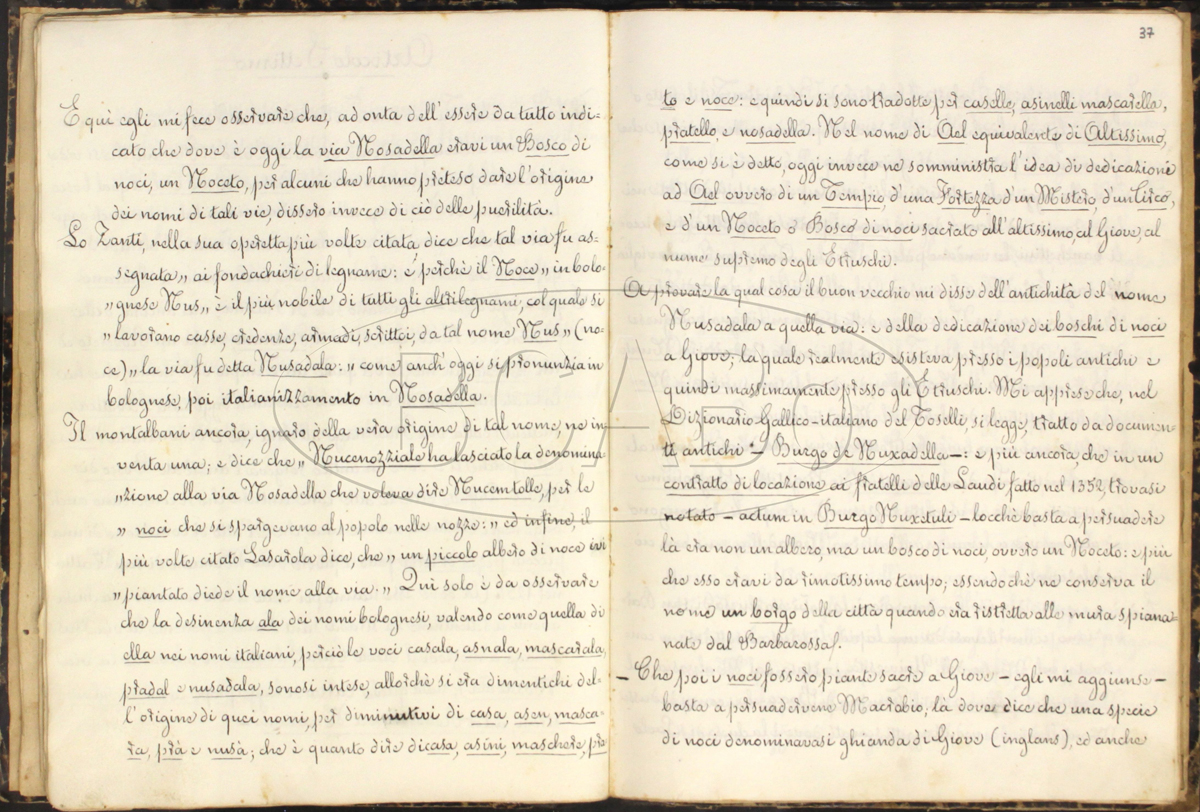 E quì egli mi fece osservare che, ad onta dell'essere da tutto indi-
cato che dove è oggi la via Nosadella eravi un Bosco di
noci, un Noceto, per alcuni che hanno preteso dare l'origine
dei nomi di tali vie, dissero invece di ciò delle puerilità.
Lo Zanti, nella sua operetta più volte citata dice che tal via fu as-
segnata „ ai fondachieri di legname: è perchè il Noce „ in bolo-
„ gnese Nus „ è il più nobile di tutti gli altri legnami, col quale si
„ lavorano casse, credenze, armadi, scrittoi, da tal nome Nus „ (no-
ce) „ la via fu detta Nusadala: „ come anch'oggi si pronunzia in
bolognese, poi italianizzamento in Nosadella.
Il montalbani ancora, ignaro della vera origine di tal nome, ne in-
venta una; e dice che „ Nucenozziale ha lasciato la denomina-
„zione alla via Nosadella che voleva dire Nucemtolle, per le
„ noci che si spargevano al popolo nelle nozze: „ ed infine, il
più volte citato Lasarola dice, che „ un piccolo albero di noce ivi
„ piantato diede il nome alla via. „ Qui solo è da osservare
che la desinenza ala dei nomi bolognesi, valendo come quella di
ella nei nomi italiani, perciò le voci casala, asnala, mascarala,
pradal e nusadala, sonosi intese, allorchè si era dimentichi del-
l'origine di quei nomi, per diminutivi di casa, asen, masca-
ra, prà e nusà; che è quanto dire di casa, asini, maschere, pra-
37
to e noce: e quindi si sono tradotte per caselle, asinelli mascarella,
pratello, e nosadella. Nel nome di Ael equivalente di Altissimo,
come si è detto, oggi invece ne somministra l'idea di dedicazione
ad Ael ovvero di un Tempio, d'una Fortezza d'un Mistero, d'un Circo,
e d'un Noceto o Bosco di noci sacrato all'altissimo, al Giove, al
nume supremo degli Etruschi.
A provare la qual cosa il buon vecchio mi disse dell'antichità del nome
Nusadala a quella via: e della dedicazione dei boschi di noci
a Giove; la quale realmente esisteva presso i popoli antichi e
quindi massimamente presso gli Etruschi. Mi apprese che, nel
Dizionario Gallico-italiano del Toselli, si legge, tratto da documen-
ti antichi – Burgo de Nuxadella –: e più ancora, che in un
contratto di locazione ai fratelli delle Laudi, fatto nel 1352, trovasi
notato – actum in Burgo Nuxetuli – locchè basta a persuadere
là era non un albero, ma un bosco di noci, ovvero un Noceto: e più
che esso eravi da rimotissimo tempo; essendochè ne conserva il
nome un borgo della città quando era ristretta alle mura spiana-
nate dal Barbarossa.
– Che poi i noci fossero piante sacre a Giove – egli mi aggiunse –
basta a persuadervene Macrobio, là dove dice che una specie
di noci denominavasi ghianda di Giove (inglans), ed anche